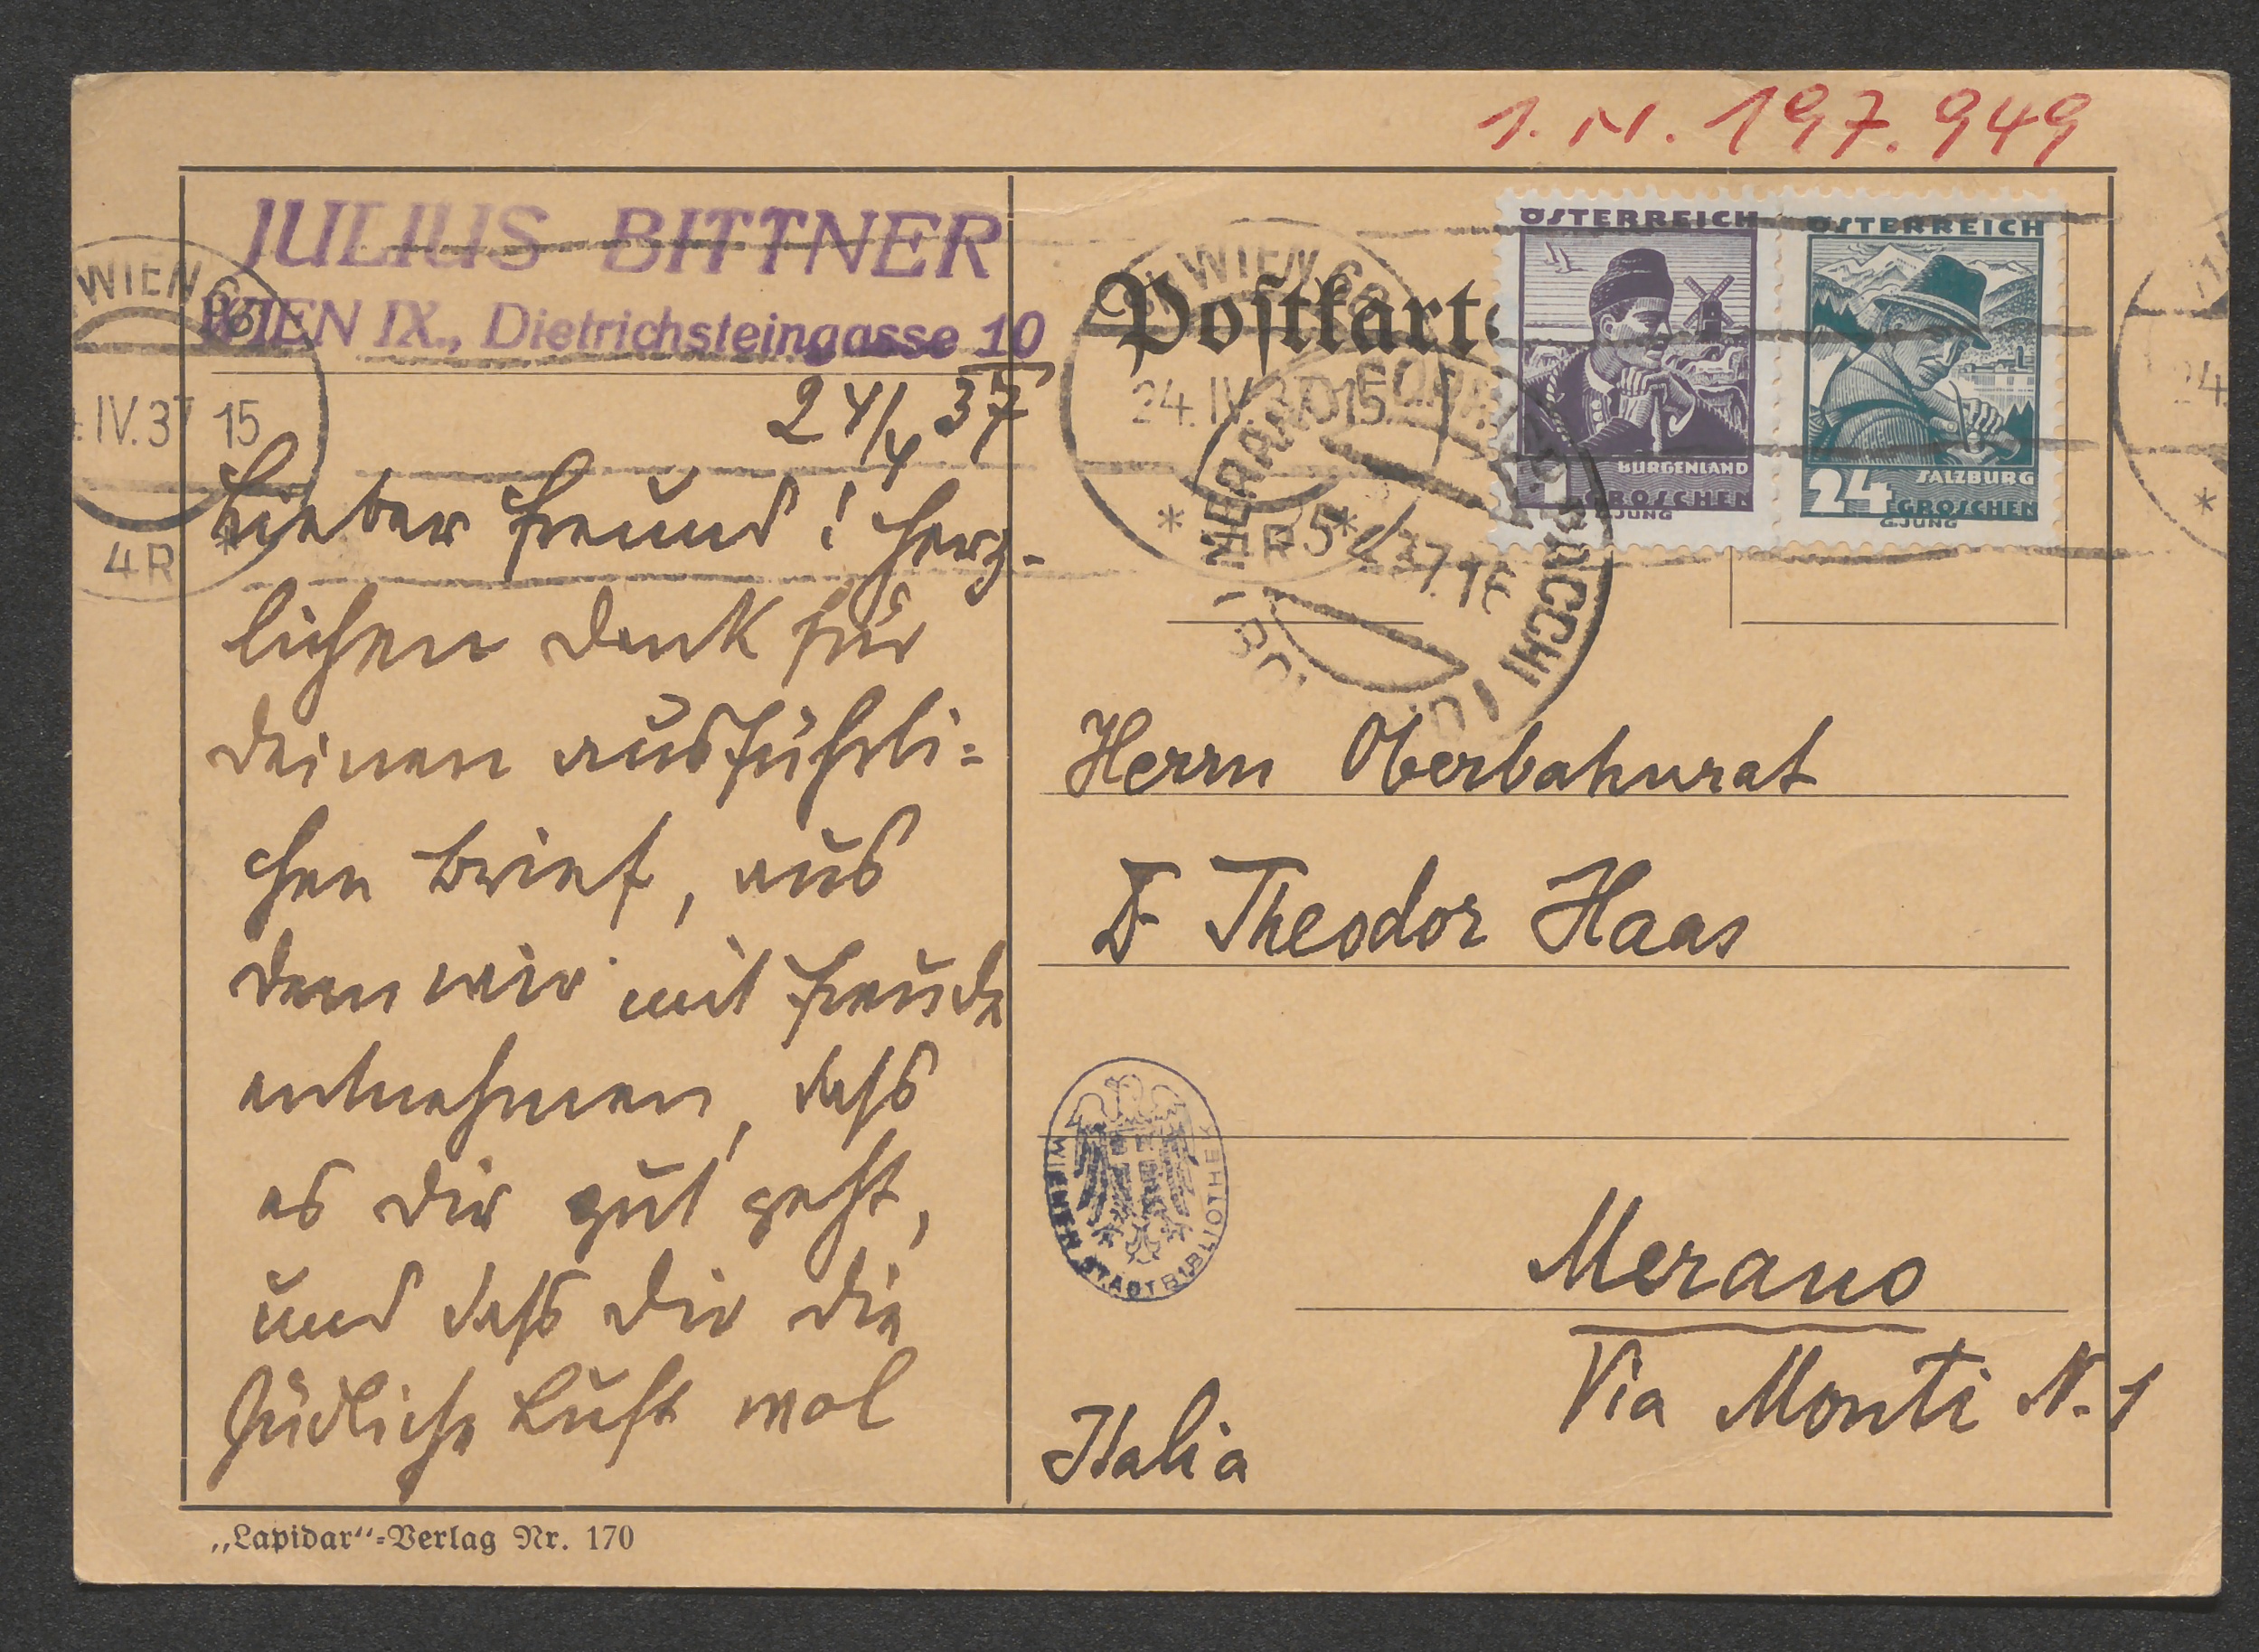 I. N. 197.949
JULIUS BITTNER
WIEN IX., Dietrichsteingasse 10
24/4 37
Lieber Freund! Herz-
lichen Dank für
deinen ausführli-
chen Brief, aus
dem wir mit Freude
entnehmen, dass
es dir gut geht,
und dass dir die
südliche Luft wol
„Lapidar“-Verlag Nr. 170
Postkarte
WIEN
24.IV.37 15
4R
MERANO
5 4 37.16
ÖSTERREICH
BURGENLAND
1 GROSCHEN
G.JUNG
ÖSTERREICH
SALZBURG
24 GROSCHEN
G.JUNG
Herrn Oberbahnrat
Dr Theodor Haas
WIENER STADTBIBLIOTHEK
Merano
Via Monti N. 1
Italia